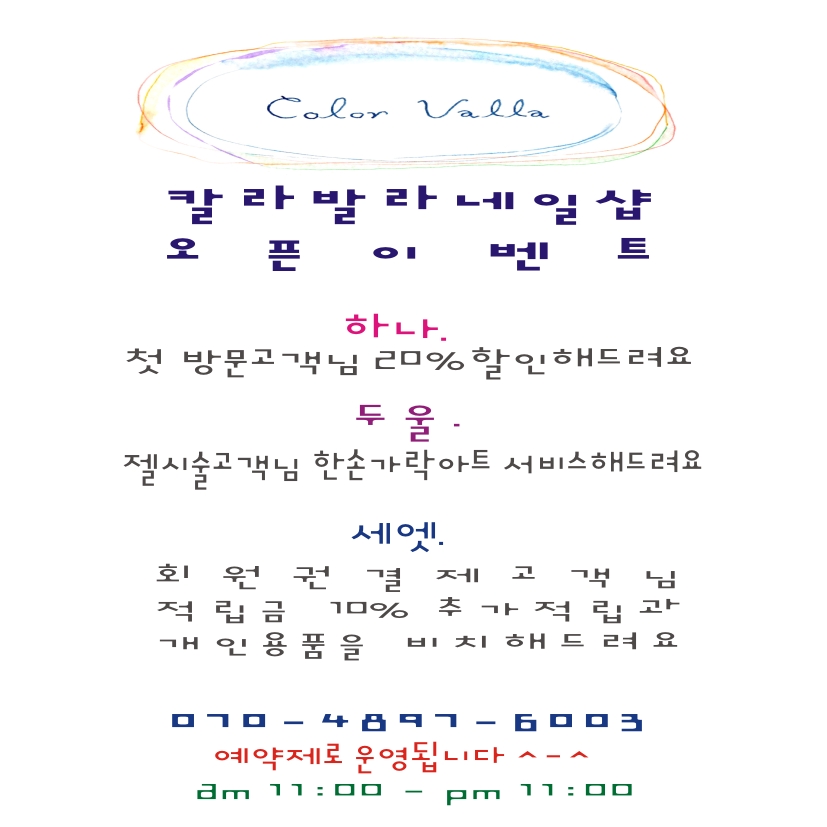 Color Valla
칼라발라네일샵
오픈이벤트
하나.
첫 방문고객님 20%할인해드려요
두울.
젤시술고객님 한손가락아트 서비스해드려요
세엣.
회원권결제고객님
적립금 10% 추가적립과
개인용품을 비치해드려요
070-4897-6003
예약제로 운영됩니다 ^-^
am 11:00 - pm 11:00